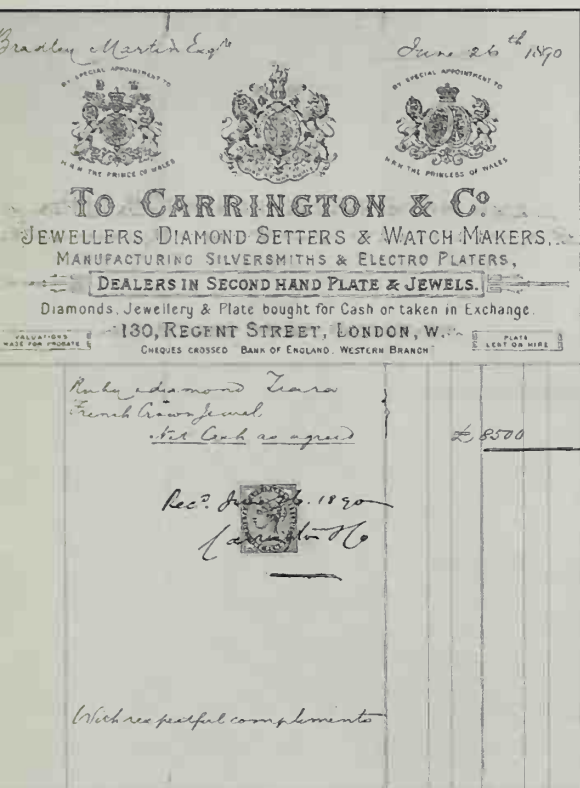 Bradley Martin Esqre
June 26th 1890
BY SPECIAL APPOINTMENT TO
H.R.H. THE PRINCE OF WALES
BY SPECIAL APPOINTMENT TO
H.R.H. THE PRINCESS OF WALES
TO CARRINGTON & Co.
JEWELLERS DIAMOND SETTERS & WATCH MAKERS,
MANUFACTURING SILVERSMITHS & ELECTRO PLATERS,
DEALERS IN SECOND HAND PLATE & JEWELS.
Diamonds, Jewellery & Plate bought for Cash or taken in Exchange.
VALUATIONS MADE FOR PROBATE
130, REGENT STREET, LONDON, W.
PLATE LENT ON HIRE
CHEQUES CROSSED "BANK OF ENGLAND, WESTERN BRANCH"
Ruby & diamond Tiara
French Crown Jewel
Net Cash as agreed £ 8500
Recd. June 26. 1890
Carrington & Co
With respectful compliments